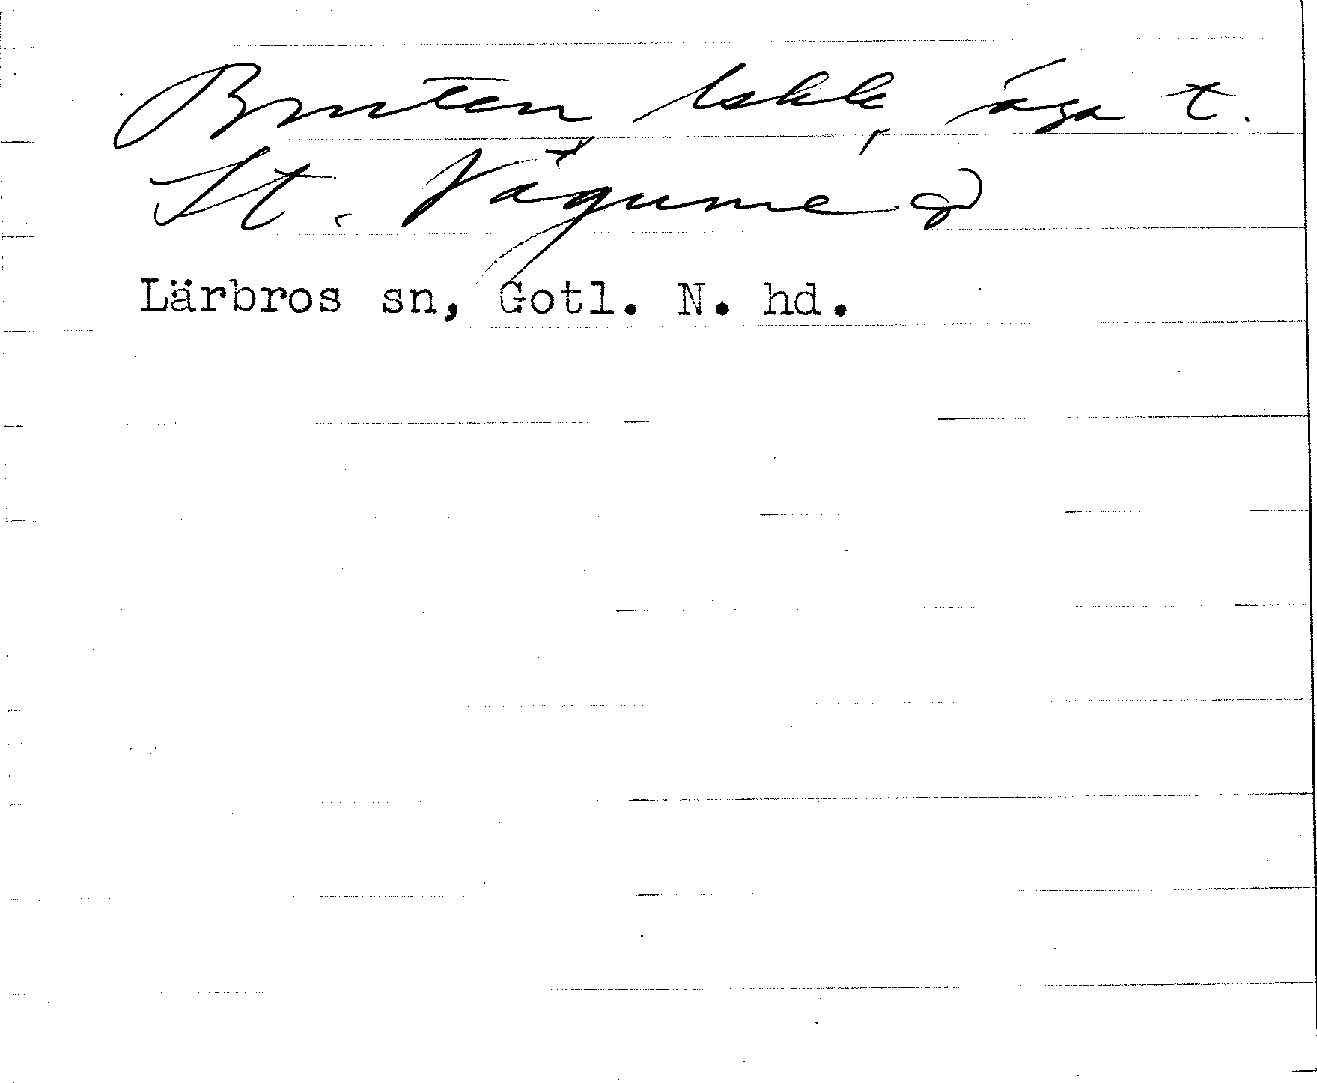 Bruten, åga t.
St. Vägume
Lärbros sn, Gotl. N. hd.